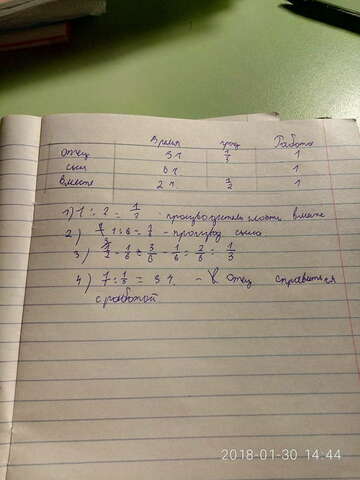 Время произ Работа
Отец 3ч 1/3 1
сын 6ч 1
Вместе 2ч 1/2 1
1) 1 : 2 = 1/2 - производительность вместе
2) 1 : 6 = 1/6 - производ сына
3) 1/2 - 1/6 = 3/6 - 1/6 = 2/6 = 1/3
4) 1 : 1/3 = 3 ч. - отец справиться
с работой
2018-01-30 14:44